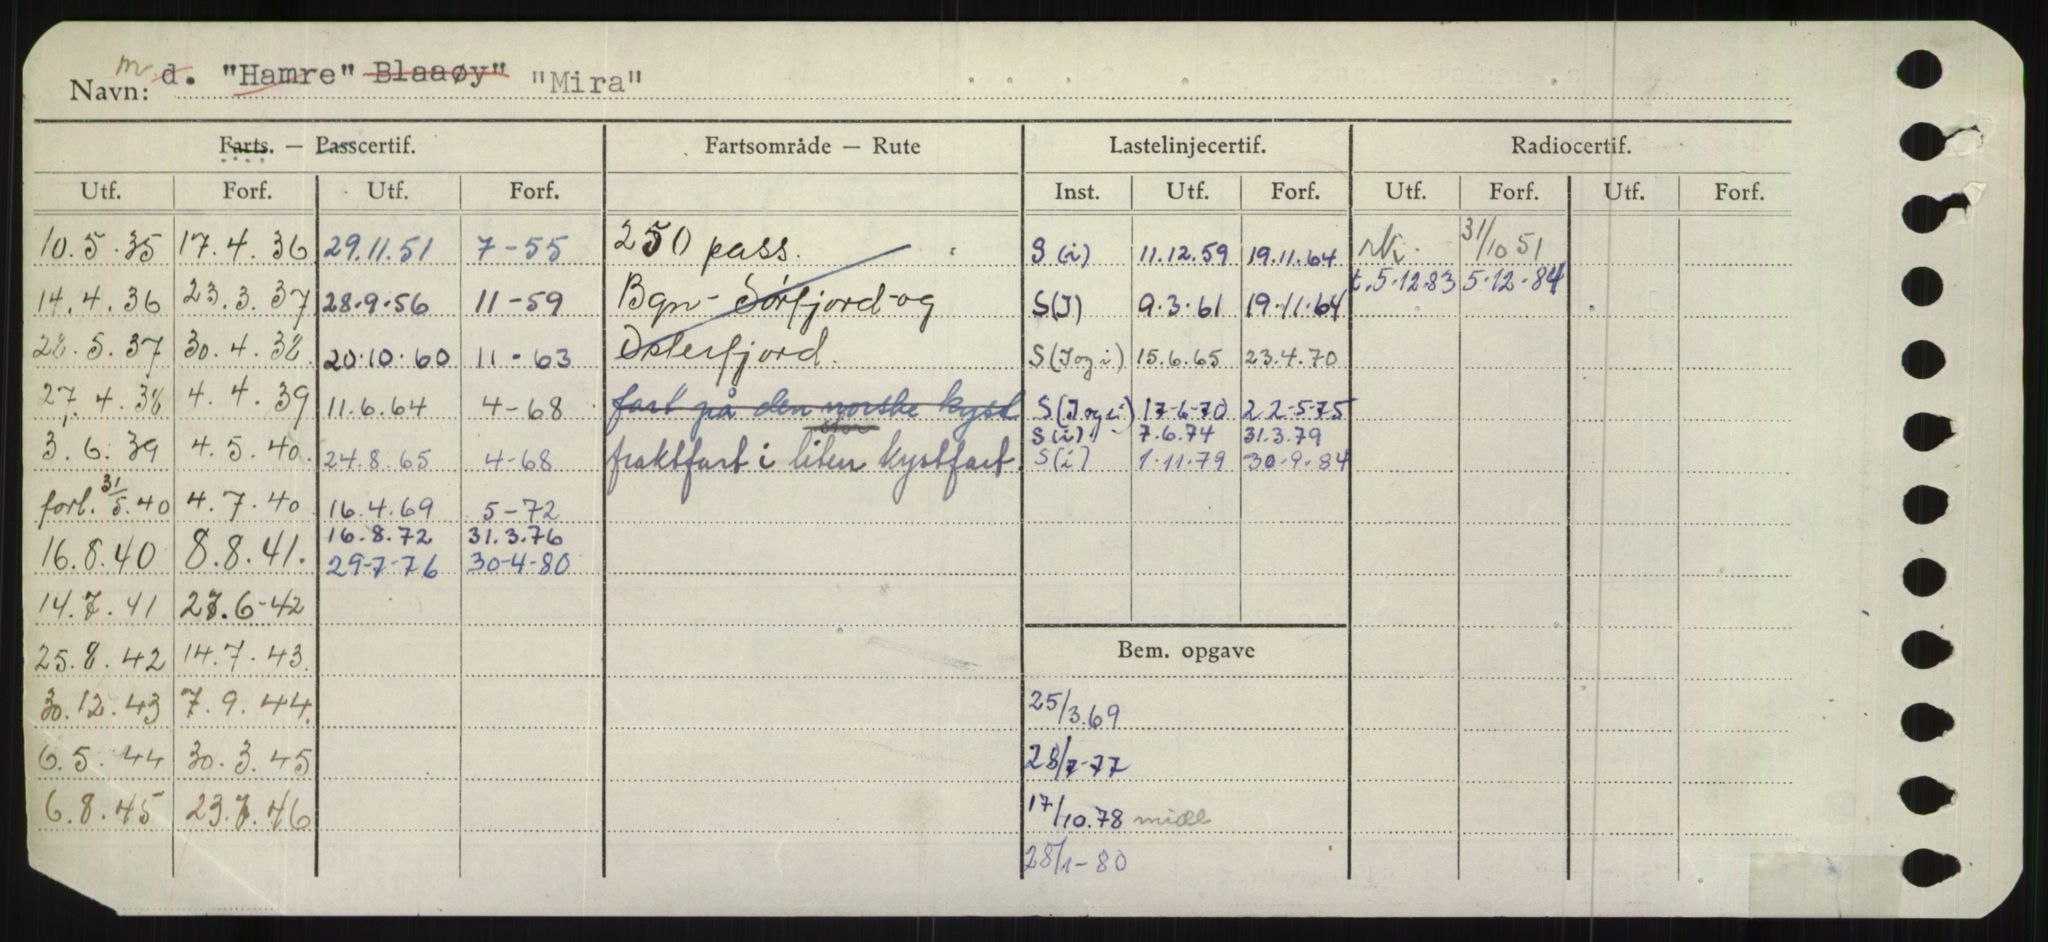 Navn: m d. "Hamre" Blaaøy" "Mira"
Farts. — Passcertif. Fartsområde — Rute Lastelinjecertif. Radiocertif.
Utf. Forf. Utf. Forf. Inst. Utf. Forf. Utf. Forf. Utf. Forf.
10.5.35 17.4.36 29.11.51 7-55 250 pass. S (i) 11.12.59 19.11.64 31/10 51
t. 5.12.83 5.12.84
14.4.36 23.3.37 28.9.56 11-59 Bgn- Sørfjord-og S(I) 9.3.61 19.11.64
28.5.37 30.4.38 20.10.60 11-63 Osterfjord. S(I og i) 15.6.65 23.4.70
27.4.38 4.4.39 11.6.64 4-68 fart på den norske kyst S(I og i) 17-6-70 22-5-75
S(i) 7.6.74 31.3.79
3.6.39 4.5.40 24.8.65 4-68 fraktfart i liten kystfart. S(i) 1.11.79 30.9.84
forl. 31/5.40 4.7.40 16.4.69 5-72
16.8.72 31.3.76
16.8.40 8.8.41. 29-7-76 30-4-80
14.7.41 27.6-42
25.8.42 14.7.43. Bem. opgave
30.12.43 7.9.44. 25/3.69
6.5.44 30.3.45 28/7-77
6.8.45 23.7.46 17/10.78 midl
28/1-80